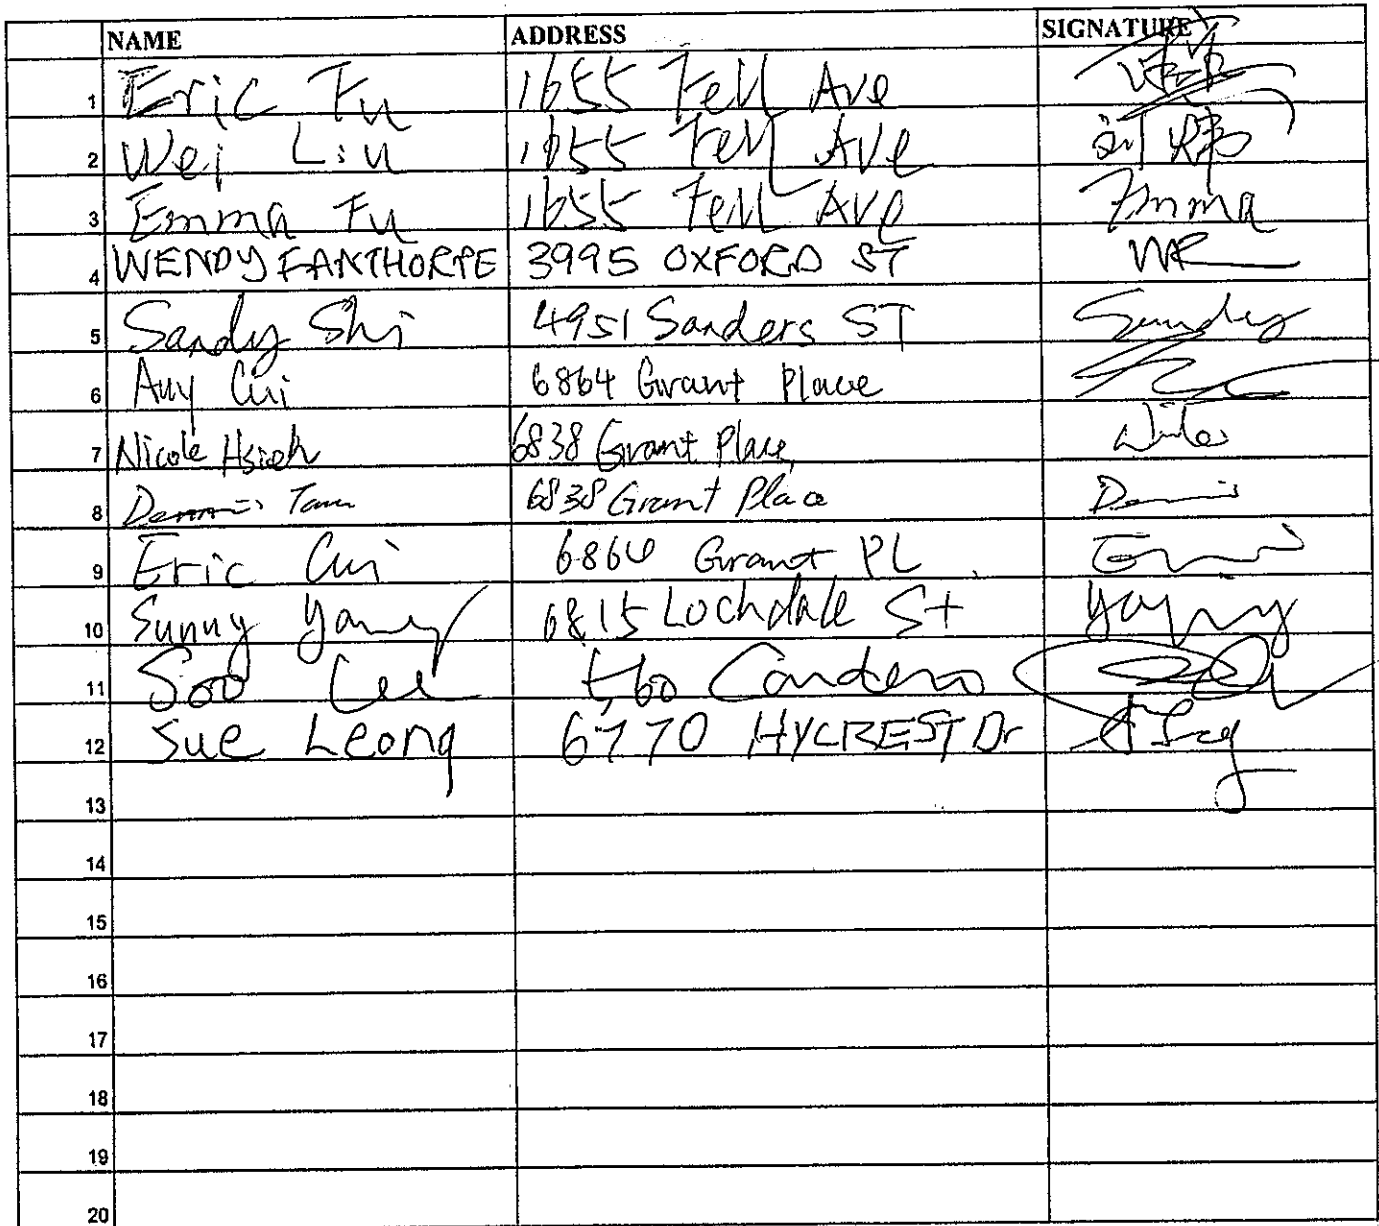 NAME ADDRESS SIGNATURE
1 Eric Fu 1655 Fell Ave
2 Wei Liu 1655 Fell Ave 刘炜
3 Emma Fu 1655 Fell Ave Emma
4 WENDY FANTHORPE 3995 OXFORD ST
5 Sandy Shi 4951 Sanders ST Sandy
6 Amy Cui 6864 Grant Place
7 Nicole Hsieh 6838 Grant Place,
8 Dennis Tam 6838 Grant Place Dennis
9 Eric Cui 6864 Grant PL
10 Sunny Yang 6815 Lochdale St
11 Soo Lee Cardero
12 Sue Leong 6770 HYCREST Dr
13
14
15
16
17
18
19
20